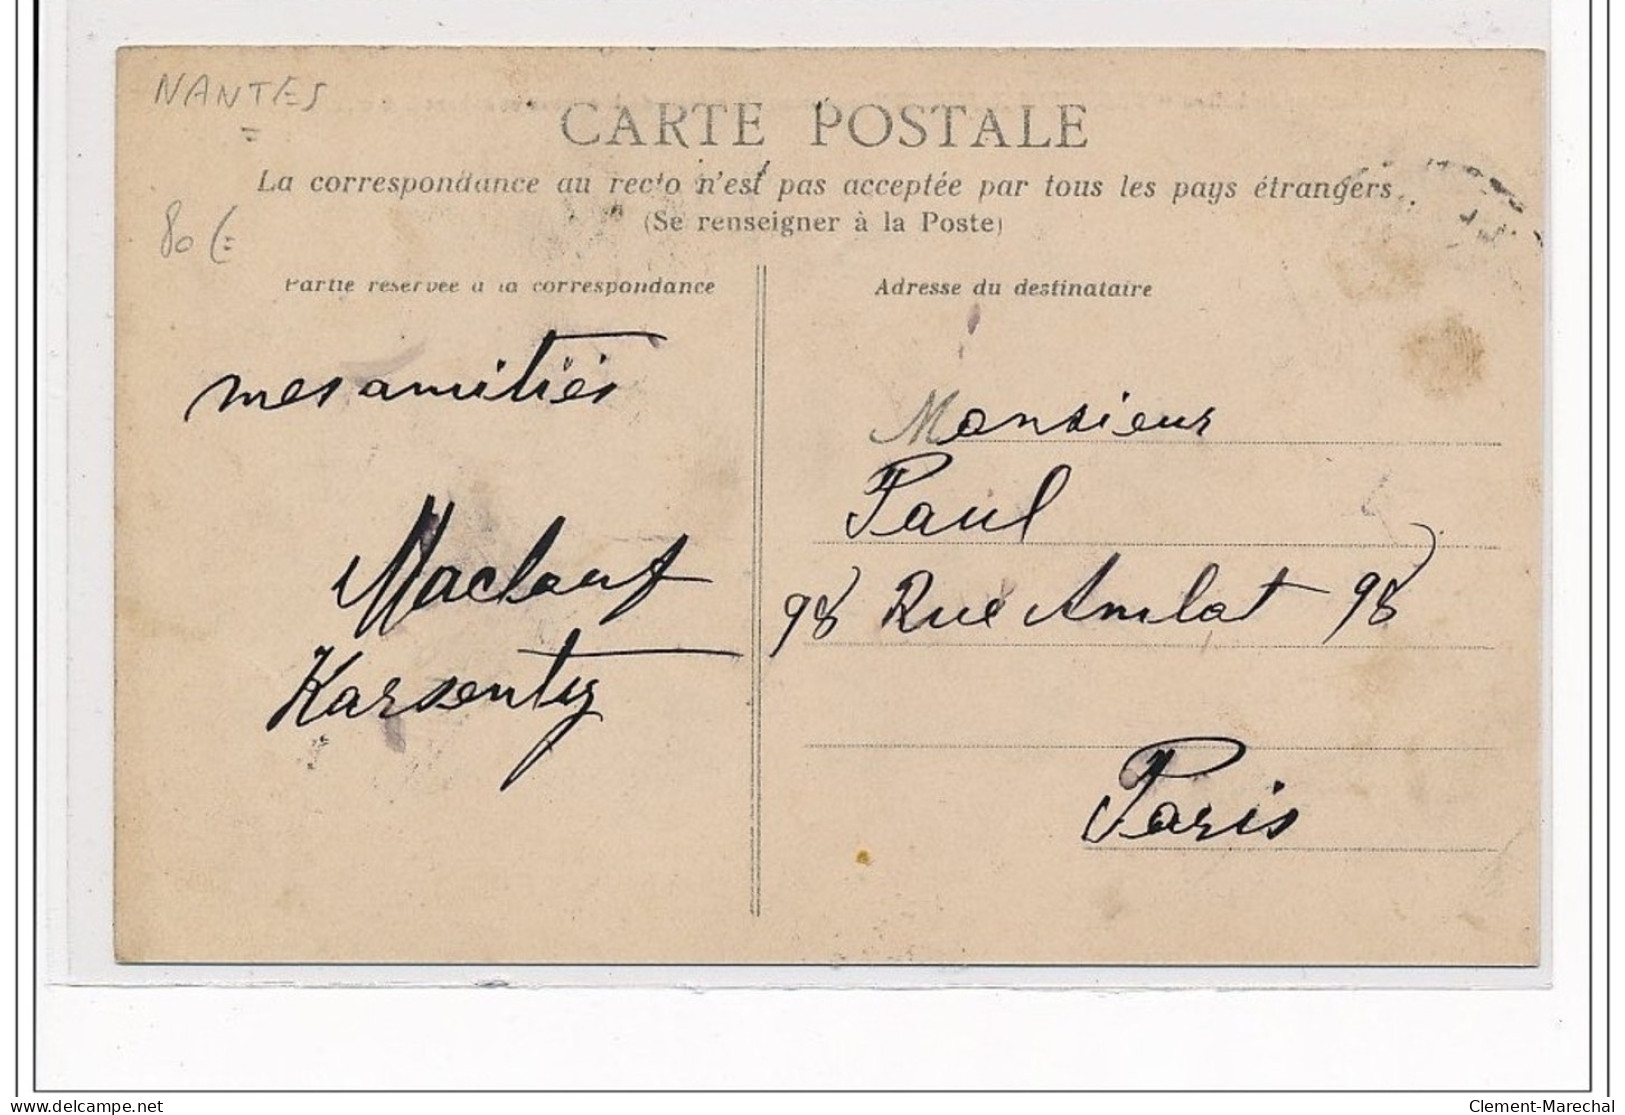 NANTES
CARTE POSTALE
La correspondance au recto n'est pas acceptée par tous les pays étrangers.
(Se renseigner à la Poste)
80 €
Partie réservée à la correspondance
Adresse du destinataire
mes amitiés
Maclouf
Karsenty
Monsieur
Paul
98 Rue Amelot 98
Paris
delcampe.net
Clement-Marechal